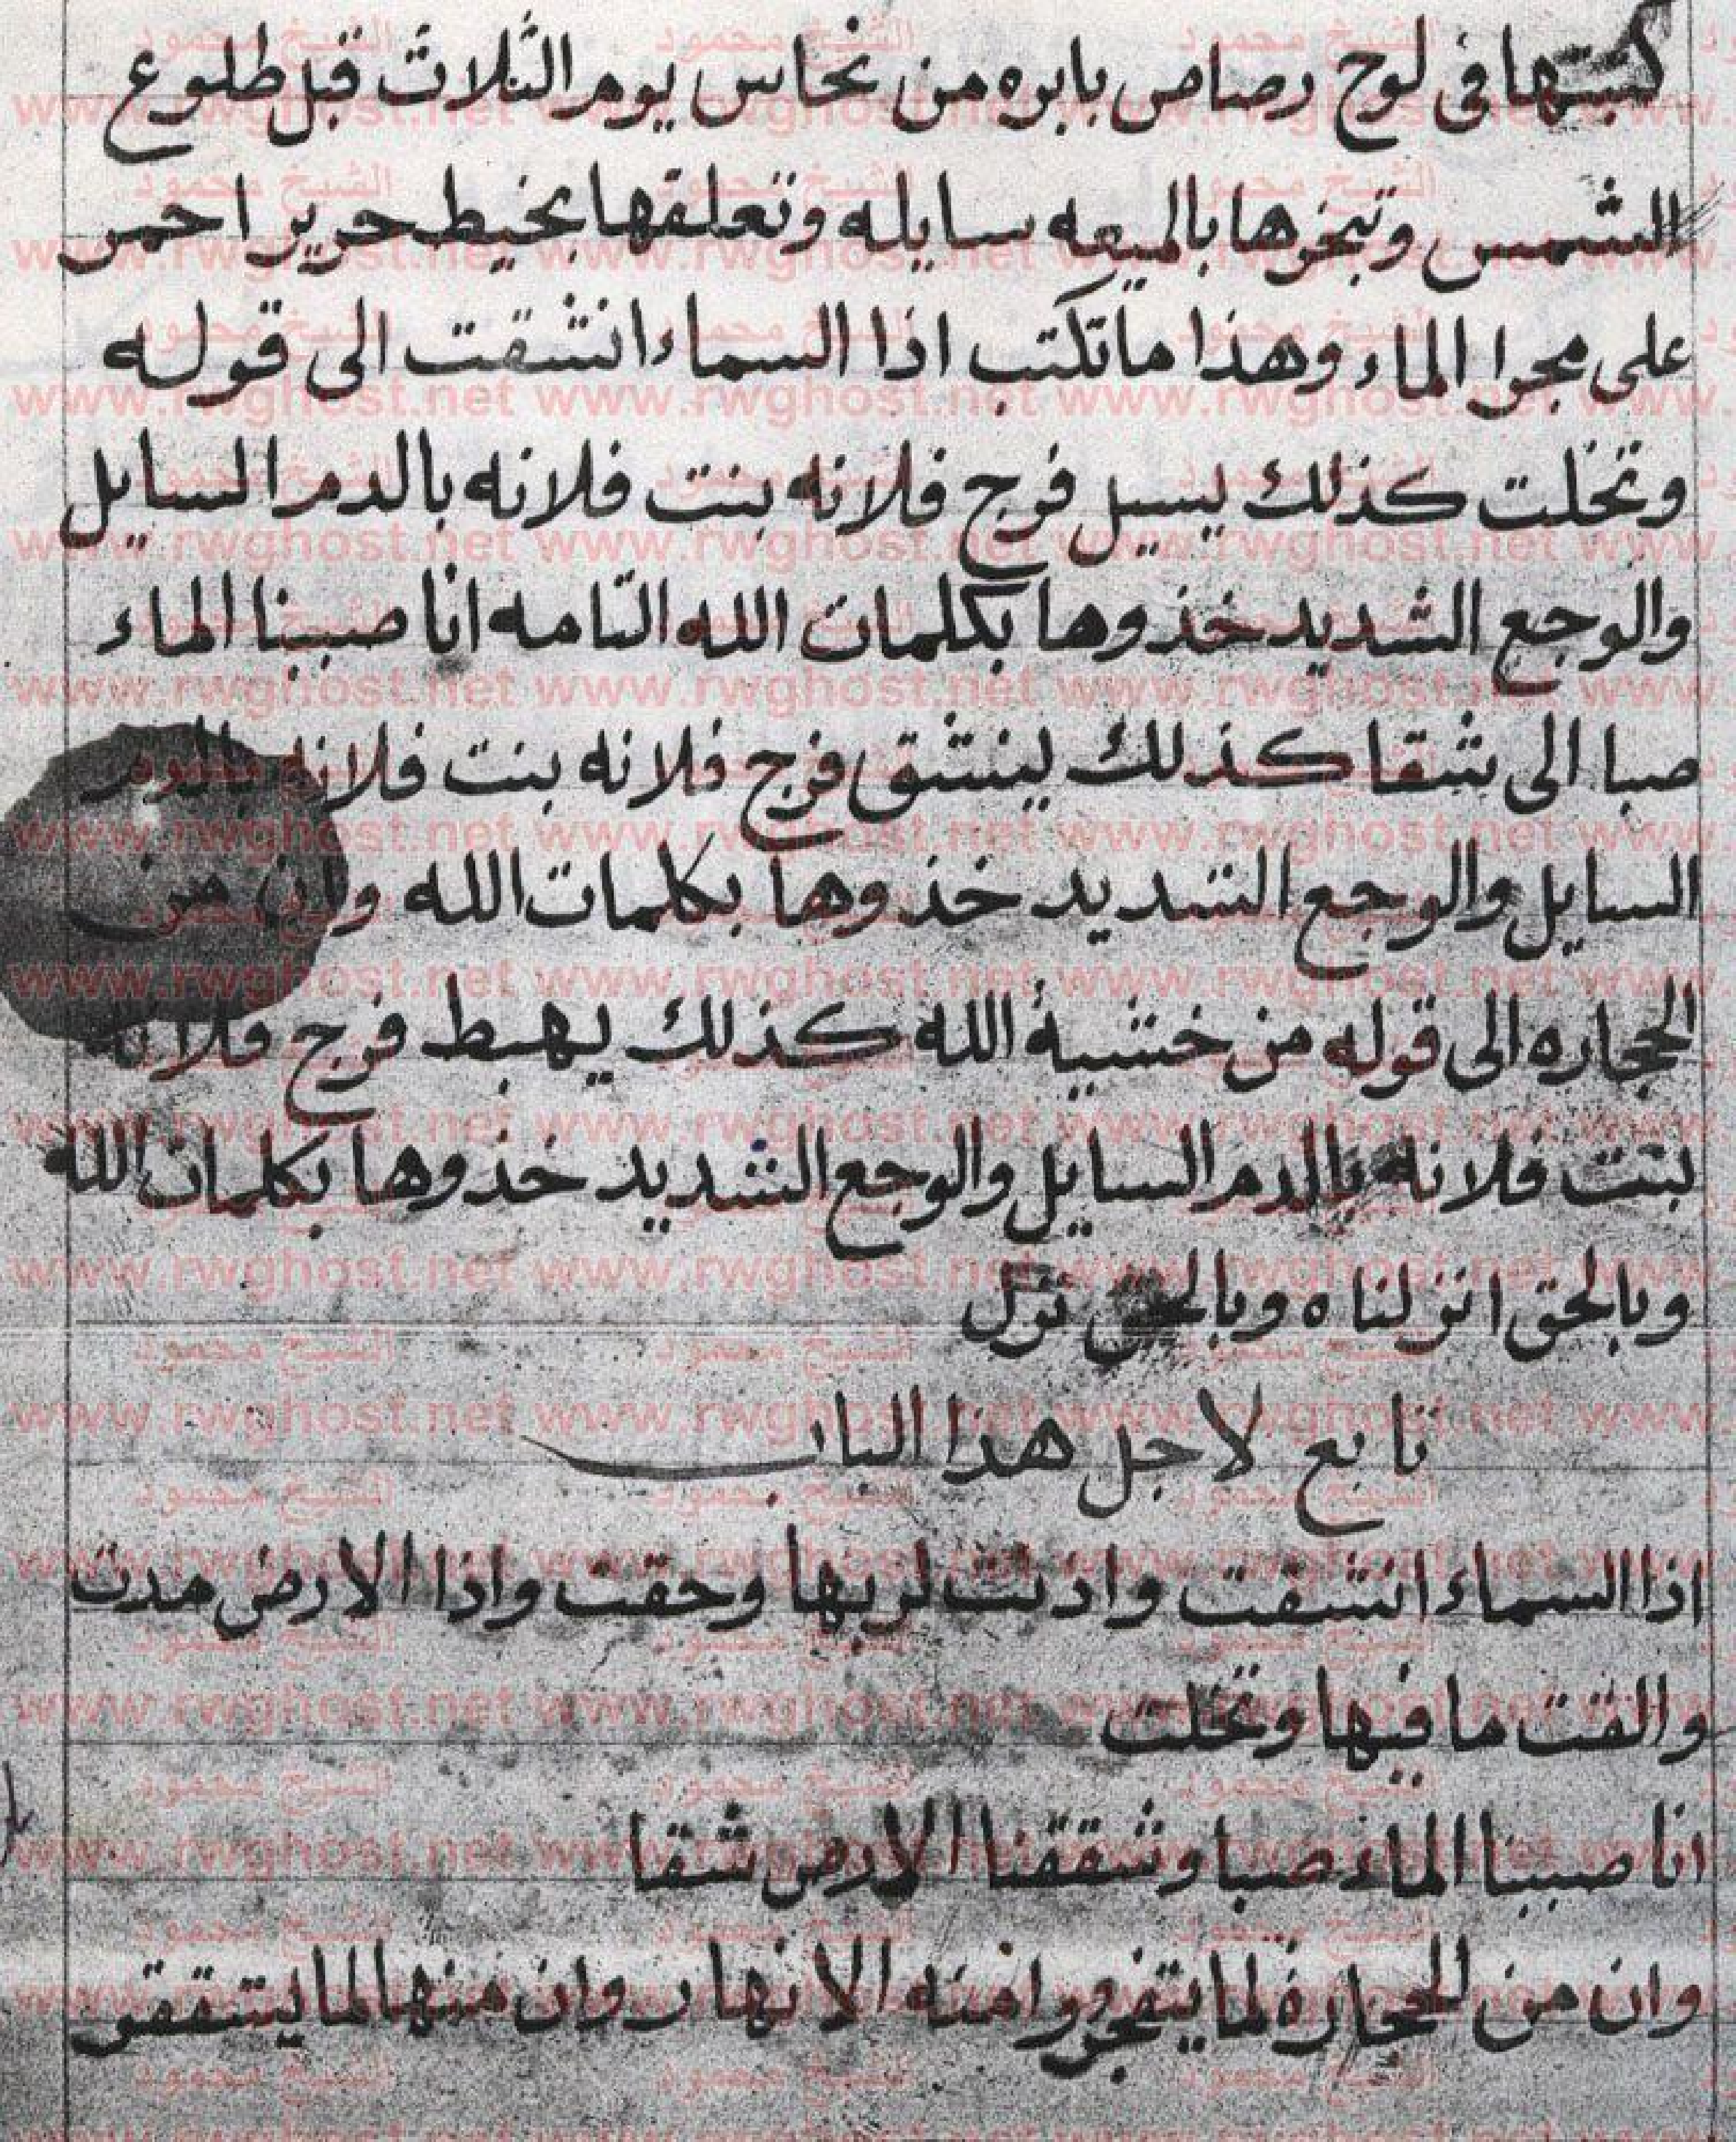 كتبتها في لوح رصاص بابره من نحاس يوم الثلاث قبل طلوع
الشمس وتبخرها بالميعه سايله وتعلقها بخيط حرير احمر
على مجرا الماء وهذا ما تكتب اذا السماء انشقت الى قوله
وتخلت كذلك يسيل فرج فلانه بنت فلانه بالدم السايل
والوجع الشديد خذوها بكلمات الله التامه انا صببنا الماء
صبا الى شقا كذلك لينشق فرج فلانه بنت فلانه بالدم
السايل والوجع الشديد خذوها بكلمات الله وان من
الحجاره الى قوله من خشية الله كذلك يهبط فرج فلانه
بنت فلانه بالدم السايل والوجع الشديد خذوها بكلمات الله
وبالحق انزلناه وبالحق نزل
تابع لاجل هذا الباب
اذا السماء انشقت واذنت لربها وحقت واذا الارض مدت
والقت ما فيها وتخلت
انا صببنا الماء صبا وشققنا الارض شقا
وان من الحجارة لما يتفجر منه الانهار وان منها لما يشقق
www.rwghost.net
الشيخ محمود